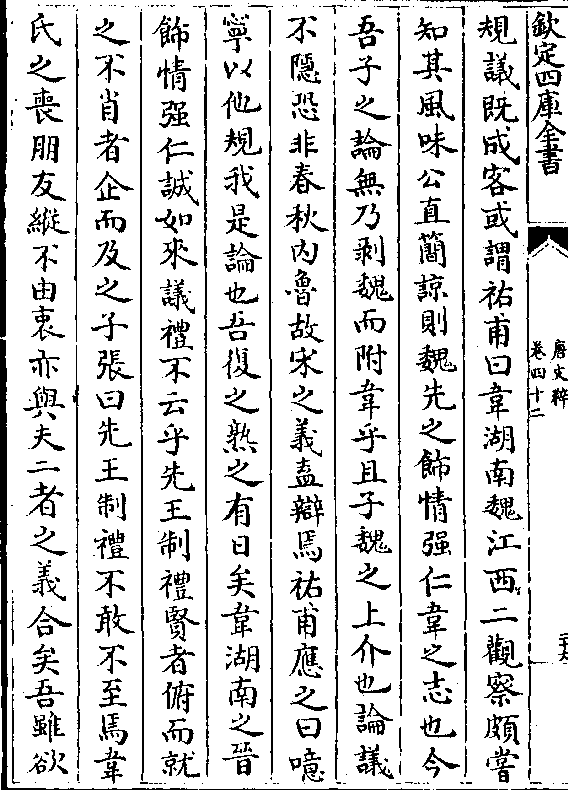 欽定四庫全書
唐文粹
卷四十二
規議既成客或謂祐甫曰韋湖南魏江西二觀察頗嘗
知其風味公直簡諒則魏先之飾情强仁韋之志也今
吾子之論無乃剥魏而附韋乎且子魏之上介也論議
不隱恐非春秋内魯故宋之義盍辯焉祐甫應之曰噫
寧以他規我是論也吾復之熟之有日矣韋湖南之晉
飾情强仁誠如來議禮不云乎先王制禮賢者俯而就
之不肖者企而及之子張曰先王制禮不敢不至焉韋
氏之喪朋友縱不由衷亦與夫二者之義合矣吾雖欲